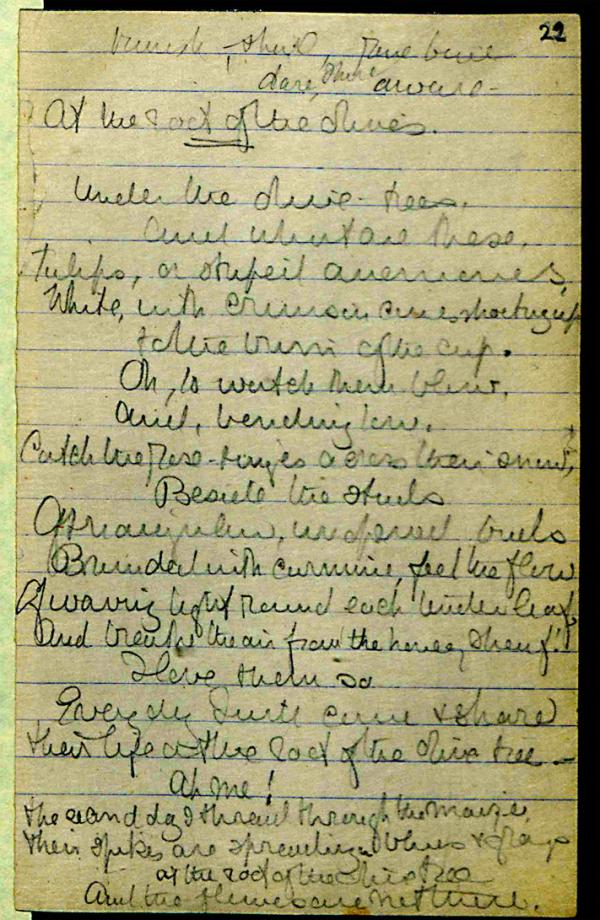 22
share
dare, share aware -
At the root of the olives.
Under the olive-trees.
And what are these,
Tulips, or striped anemones,
White, with crimson cones shooting up
to the brim of the cup.
Oh, to watch them blow,
And, bending low,
Catch the rose-tinges across their snow,
Beside the studs
Of triangular, unopened buds
Branded with carmine, feel the flow
Of waving light round each under leaf
And breathe the air from the honey sheaf!
I love them so
Every day I will come & share
Their life at the root of the olive tree -
Ah me!
The second day I thread through the maize,
Their spikes are spreading blues & grays
at the root of the Olive tree
And the flowers are not there.